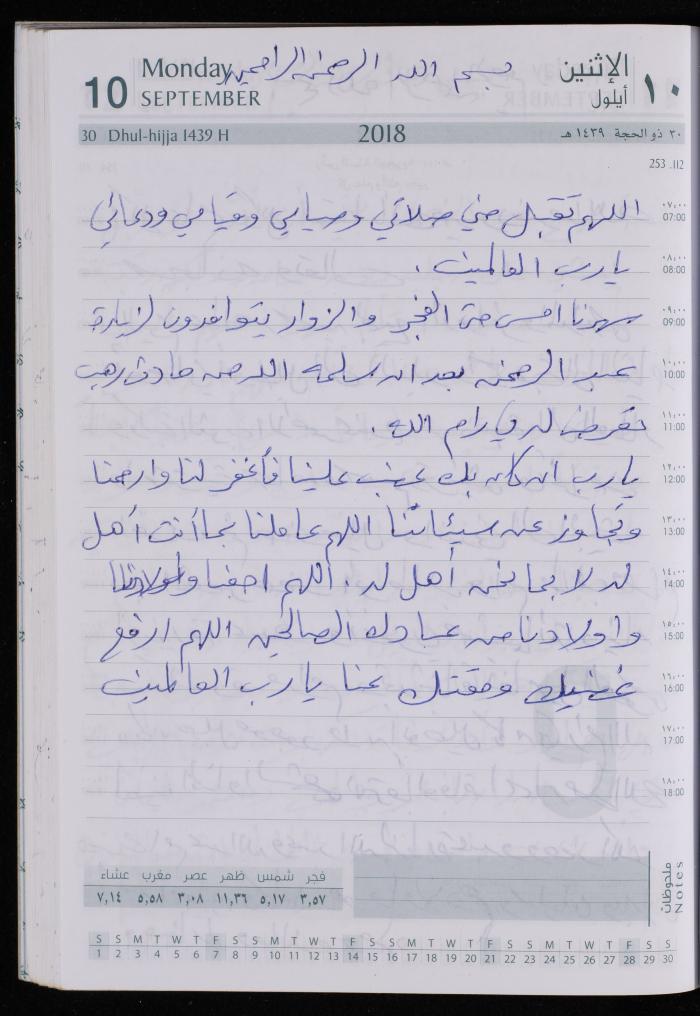 بسم الله الرحمن الرحيم
10 Monday SEPTEMBER
١٠ الإثنين أيلول
30 Dhul-hijja 1439 H 2018 ٣٠ ذو الحجة ١٤٣٩ هـ
253 .112
٠٧:٠٠ 07:00
اللهم تقبل مني صلاتي وصيامي وقيامي ودعائي
٠٨:٠٠ 08:00
يا رب العالمين .
٠٩:٠٠ 09:00
سهرنا امس حتى الفجر والزوار يتوافدون لزيارة
١٠:٠٠ 10:00
عبد الرحمن بعد ان سلمه الله من حادث رهيب
١١:٠٠ 11:00
تعرض له في رام الله .
١٢:٠٠ 12:00
يا رب ان كان بك غضب علينا فأغفر لنا وارحمنا
١٣:٠٠ 13:00
وتجاوز عن سيئاتنا اللهم عاملنا بما أنت أهل
١٤:٠٠ 14:00
له لا بما نحن أهل له . اللهم احفنا
١٥:٠٠ 15:00
واولادنا من عبادك الصالحين اللهم ارفع
١٦:٠٠ 16:00
غضبك ومقتك عنا يا رب العالمين
١٧:٠٠ 17:00
١٨:٠٠ 18:00
فجر شمس ظهر عصر مغرب عشاء
٣,٥٧ ٥,١٧ ١١,٣٦ ٣,٠٨ ٥,٥٨ ٧,١٤
ملحوظات Notes
S S M T W T F S S M T W T F S S M T W T F S S M T W T F S S
1 2 3 4 5 6 7 8 9 10 11 12 13 14 15 16 17 18 19 20 21 22 23 24 25 26 27 28 29 30